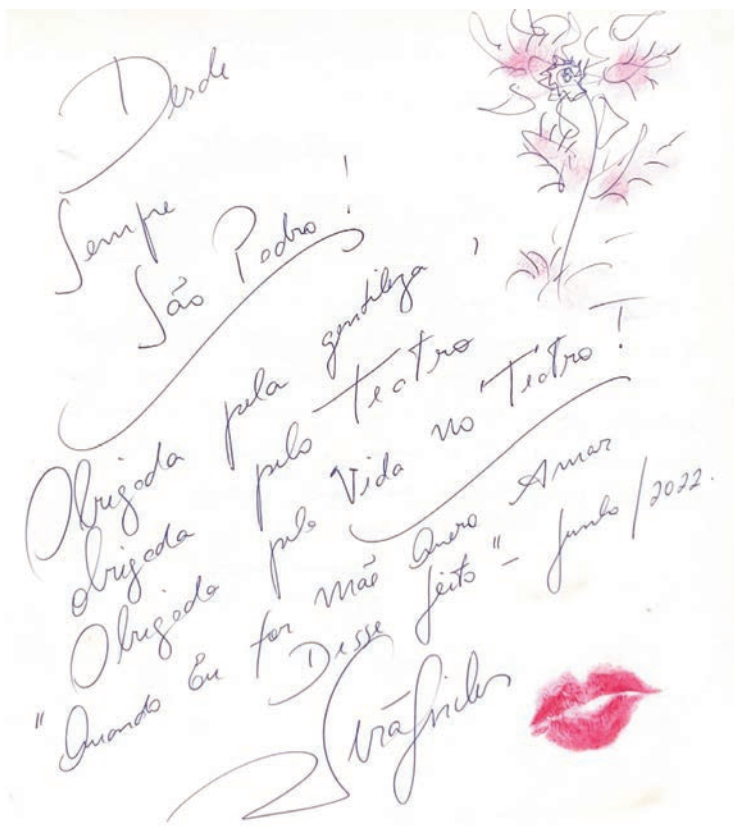 Desde
Sempre
São Pedro!
Obrigada pela gentileza
obrigada pelo Teatro
Obrigada pela Vida no Teatro!
"Quando Eu for Mãe Quero Amar
Desse jeito" - junho/2022.